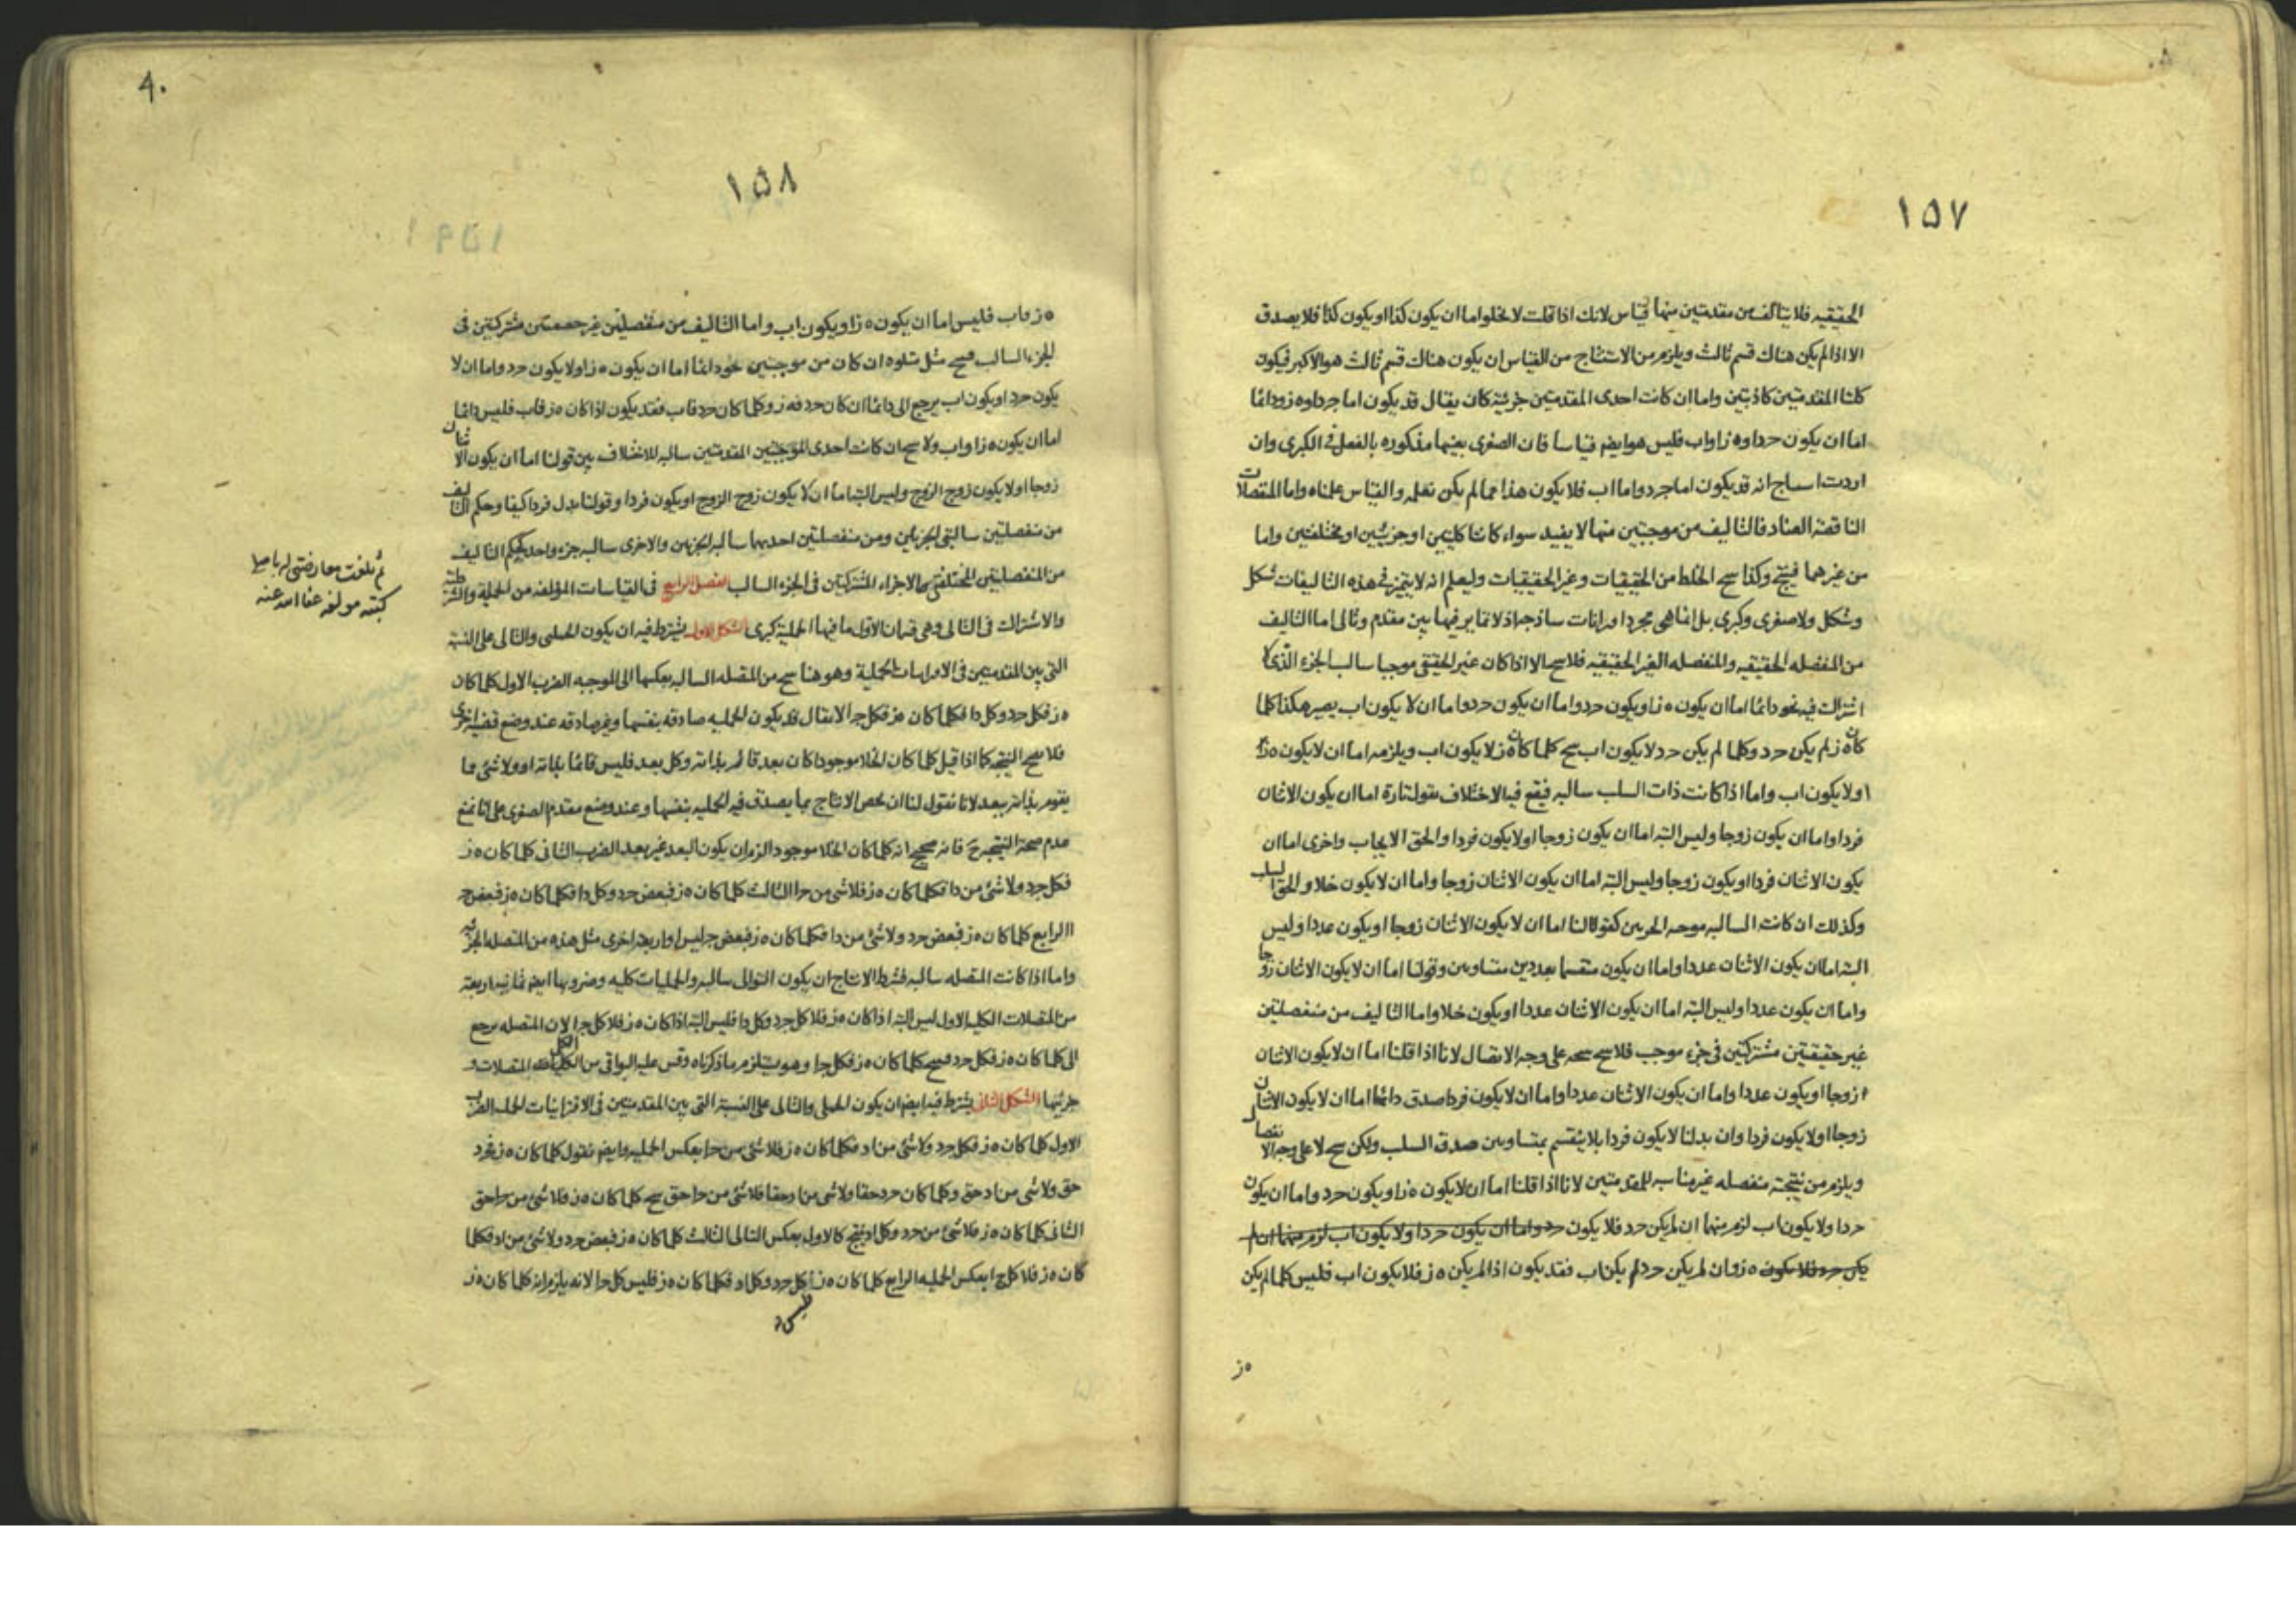 ١٥٧
الحقيقيه فلا يتالف من مقدمتين منها قياس لانك اذا قلت لا يخلوا ما ان يكون كذا او يكون كذا فلا يصدق
الا اذا لم يكن هناك قسم ثالث ويلزم من الاستنتاج من القياس ان يكون هناك قسم ثالث هو الاكبر فيكون
كلتا المقدمتين كاذبتين واما ان كانت احدى المقدمتين جزئية كان يقال قد يكون اما جرد اوه ز ودائما
اما ان يكون حد اوه ز او اب فليس هو ايضم قياسا فان الصغرى بعينها مذكوره بالفعل في الكبرى وان
اردت انه قد يكون اما جرد واما اب فلا يكون هذا مما لم يكن نعلمه والقياس علمناه واما المنفصلات
الناقصة العناد فالتاليف من موجبتين منها لا يفيد سواء كانتا كليتين او جزئيتين او مختلفتين واما
من غيرهما فينتج وكذا سح الخلط من الحقيقيات وغير الحقيقيات وليعلم انه لا يتميز في هذه التاليفات شكل
وشكل ولا صغرى وكبرى بل انما هي مجرد اورانات ساذجه اذ لا تمايز فيها بين مقدم وتالى اما التاليف
من المنفصله الحقيقيه والمنفصله الغير الحقيقيه فلا سح الا اذا كان غير الحقيقى موجبا سالب الجزء الذى لا
اشتراك فيه نحو دائما اما ان يكون ه ز او يكون حرد واما ان يكون حرد واما ان لا يكون اب يصير هكذا كلما
كان ه ز لم يكن حرد وكلما لم يكن حرد لا يكون اب سح كلما كان ه ز لا يكون اب ويلزمه اما ان لا يكون ه ز
او لا يكون اب واما اذا كانت ذات السلب سالبه فيقع فيه الاختلاف نقول تارة اما ان يكون الاثنان
فردا واما ان يكون زوجا وليس البته اما ان يكون زوجا او لا يكون فردا والحق الايجاب واخرى اما ان
يكون الاثنان فردا او يكون زوجا وليس البته اما ان يكون الاثنان زوجا واما ان لا يكون خلاو الحق السلب
وكذلك ان كانت السالبه موجبه الجزءين كقولنا اما ان لا يكون الاثنان زوجا او يكون عددا وليس
البته اما ان يكون الاثنان عددا واما ان يكون منقسما بعددين متساويين وقولنا اما ان لا يكون الاثنان زوجا
واما ان يكون عددا وليس البته اما ان يكون الاثنان عددا او يكون خلاو اما التاليف من منفصلتين
غير حقيقتين مشتركتين في جزء موجب فلا سح سحه على وجه الاتصال لانا اذا قلنا اما ان لا يكون الاثنان
زوجا او يكون عددا واما ان يكون الاثنان عددا واما ان لا يكون فردا صدق دائما اما ان لا يكون الاثنان
زوجا او لا يكون فردا وان بدلنا لا يكون فردا بلا ينقسم بمتساويين صدق السلب ولكن سح لا على وجه الانفصال
ويلزم من نتيجته منفصله غير مناسبه للمقدمتين لانا اذا قلنا اما ان لا يكون ه ز او يكون حرد واما ان يكون
حردا ولا يكون اب لزم منهما ان لم يكن حرد فلا يكون حرد واما ان يكون حردا ولا يكون اب لزم منهما ان لم
يكن حرد فلا يكون ه ز وان لم يكن حرد لم يكن اب فقد يكون اذا لم يكن ه ز فلا يكون اب فليس كلما لم يكن
ه ز
٩٠
١٥٨
ه ز فاب فليس اما ان يكون ه ز او يكون اب واما التاليف من منفصلتين غير حقيقيتين مشتركتين فى
الجزء السالب فسح مثل تلوه ان كان من موجبتين نحو دائما اما ان يكون ه ز او لا يكون حرد واما ان لا
يكون حرد او يكون اب يرجع الى دائما ان كان حرد فه ز وكلما كان حرد فاب فقد يكون اذا كان ه ز فاب فليس دائما
اما ان يكون ه ز او اب ولا سح ان كانت احدى الموجبتين المقدمتين سالبه للاختلاف بين قولنا اما ان يكون الاثنان
زوجا او لا يكون زوج الزوج وليس البته اما ان لا يكون زوج الزوج او يكون فردا وقولنا بدل فردا كيفا وحكم التاليف
من منفصلتين سالبتى الجزءين ومن منفصلتين احديهما سالبه الجزءين والاخرى سالبه جزء واحد كحكم التاليف
من المنفصلتين المختلفتى الاجزاء المشتركتين فى الجزء السالب الفصل الرابع فى القياسات المؤلفه من الحملية والشرطيه
والاشتراك فى التالى وهى قسمان الاول ما فيها الحملية كبرى الشكل الاول يشترط فيه ان يكون الحملى والتالى على النسبة
التى بين المقدمتين فى الاقترانيات الحملية وهو هنا سح من المتصله السالبه بعكسها الى الموجبه الضرب الاول كلما كان
ه ز فكل حرد وكل دا فكلما كان ه ز فكل جرا لا يقال قد يكون الحمليه صادقه بنفسها وغير صادقه عند وضع قضية اخرى
فلا سح النتيجه كما اذا قيل كلما كان الخلا موجودا كان بعد قائم بذاته وكل بعد فليس قائما بذاته او ولا شئ مما
يقوم بذاته ببعد لانا نقول لنا ان نخص الانتاج بما يصدق فيه الحمليه بنفسها وعند وضع مقدم الصغرى على انا نمنع
عدم صحة النتيجه ح فانه صحيح انه كلما كان الخلا موجودا لزم ان يكون البعد غير بعد الضرب الثانى كلما كان ه ز
فكل جرد ولا شئ من دا فكلما كان ه ز فلا شى من حرا الثالث كلما كان ه ز فبعض حرد وكل دا فكلما كان ه ز فبعض جر
ا الرابع كلما كان ه ز فبعض حرد ولا شئ من دا فكلما كان ه ز فبعض جر ليس ا واربعه اخرى مثل هذه من المتصله الجزئيه
واما اذا كانت المتصله سالبه فشرط الانتاج ان يكون التوالى سالبه والحمليات كليه وضروبها ايضم ثمانيه اربعة
من المتصلات الكليه الاول ليس البته اذا كان ه ز فلا كل جرد وكل دا فليس البته اذا كان ه ز فلا كل جرا لان المتصله يرجع
الى كلما كان ه ز فكل جرد فسح كلما كان ه ز فكل جرا وهو يستلزم ما ذكرناه وقس عليه البواقى من الكليات المتصلات و
جزئيها الشكل الثانى يشترط فيه ايضم ان يكون الحملى والتالى على النسبة التى بين المقدمتين فى الاقترانيات الحمليه الضرب
الاول كلما كان ه ز فكل جرد ولا شئ من اد فكلما كان ه ز فلا شئ من حرا بعكس الحمليه وايضم نقول كلما كان ه ز فجرد
حق ولا شى من اد حق وكلما كان حرد حقا ولا شى من اد حقا فلا شئ من حرا حق سح كلما كان ه ز فلا شئ من حرا حق
الثانى كلما كان ه ز فلا شئ من حرد وكل اد ينتج كالاول بعكس التالى الثالث كلما كان ه ز فبعض حرد ولا شئ من اد فكلما
كان ه ز فلا كل ج ا بعكس الحمليه الرابع كلما كان ه ز لا كل حرد وكل اد فكلما كان ه ز فليس كل حرا لانه يلزم انه كلما كان ه ز
ثم بلغت معارضتى له باصلى
كتبه مولفه عفا الله عنه